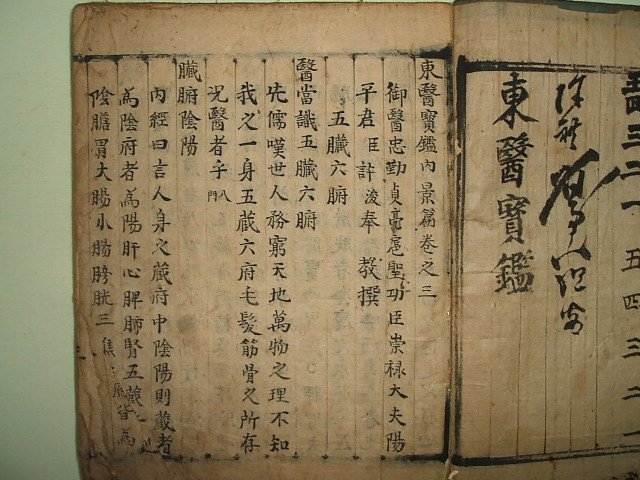 東醫寶鑑
東醫寶鑑內景篇卷之三
御醫忠勤貞亮扈聖功臣崇禄大夫陽
平君臣許浚奉教撰
五臟六腑
醫當識五臟六腑
先儒嘆世人務窮天地萬物之理不知
我之一身五蔵六府毛髮筋骨之所存
况醫者乎 入門
臟腑陰陽
內經曰言人身之蔵府中陰陽則蔵者
為陰府者為陽肝心脾肺腎五蔵
陰膽胃大腸小腸膀胱三焦
皆為